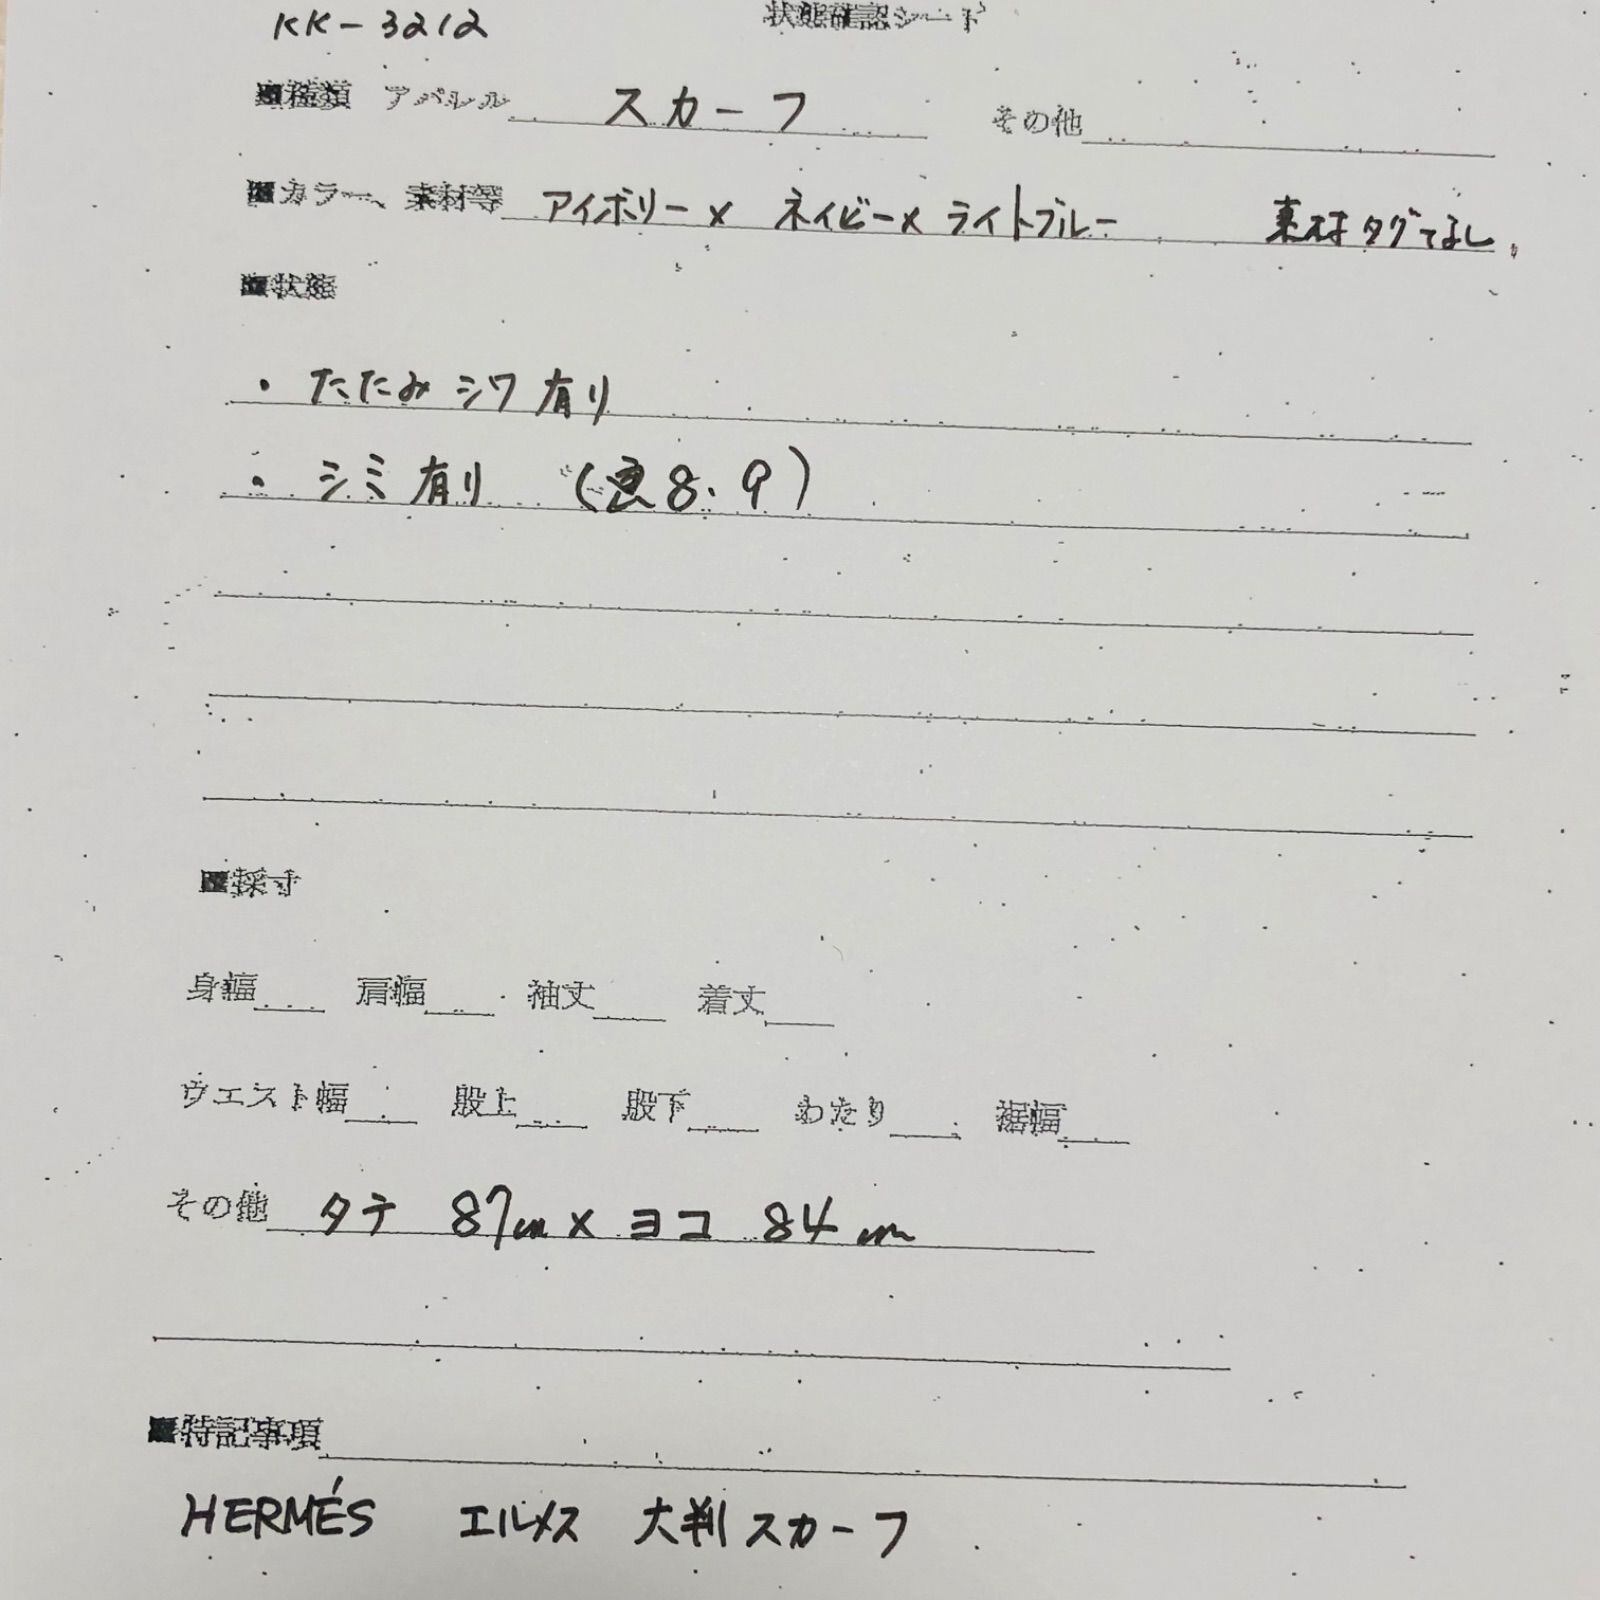 KK-3212
状態確認シート
■種類 アパレル スカーフ その他
■カラー、素材等 アイボリー×ネイビー×ライトブルー 素材タグなし
■状態
・たたみシワ有り
・シミ有り ( 8、9)
■採寸
身幅 肩幅 袖丈 着丈
ウエスト幅 股上 股下 わたり 裾幅
その他 タテ 87cm × ヨコ 84cm
■特記事項
HERMÉS エルメス 大判スカーフ